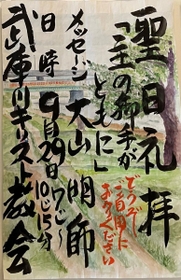 聖日礼拝
「主の御手が
ともに」
どうぞ
ご自由に
お入りください
メッセージ 大山 明師
日時 9月29日
10じ15分
武庫川キリスト教会